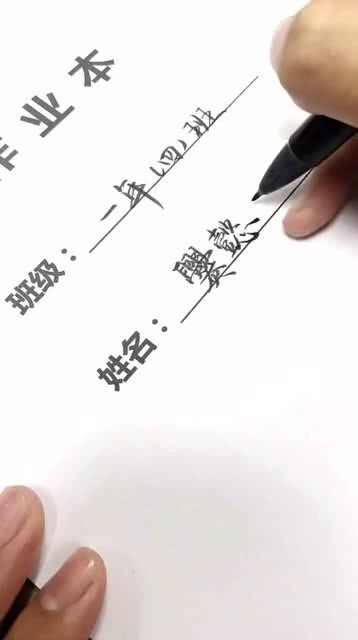 作业本
班级：一年(四)班
姓名：爨懿